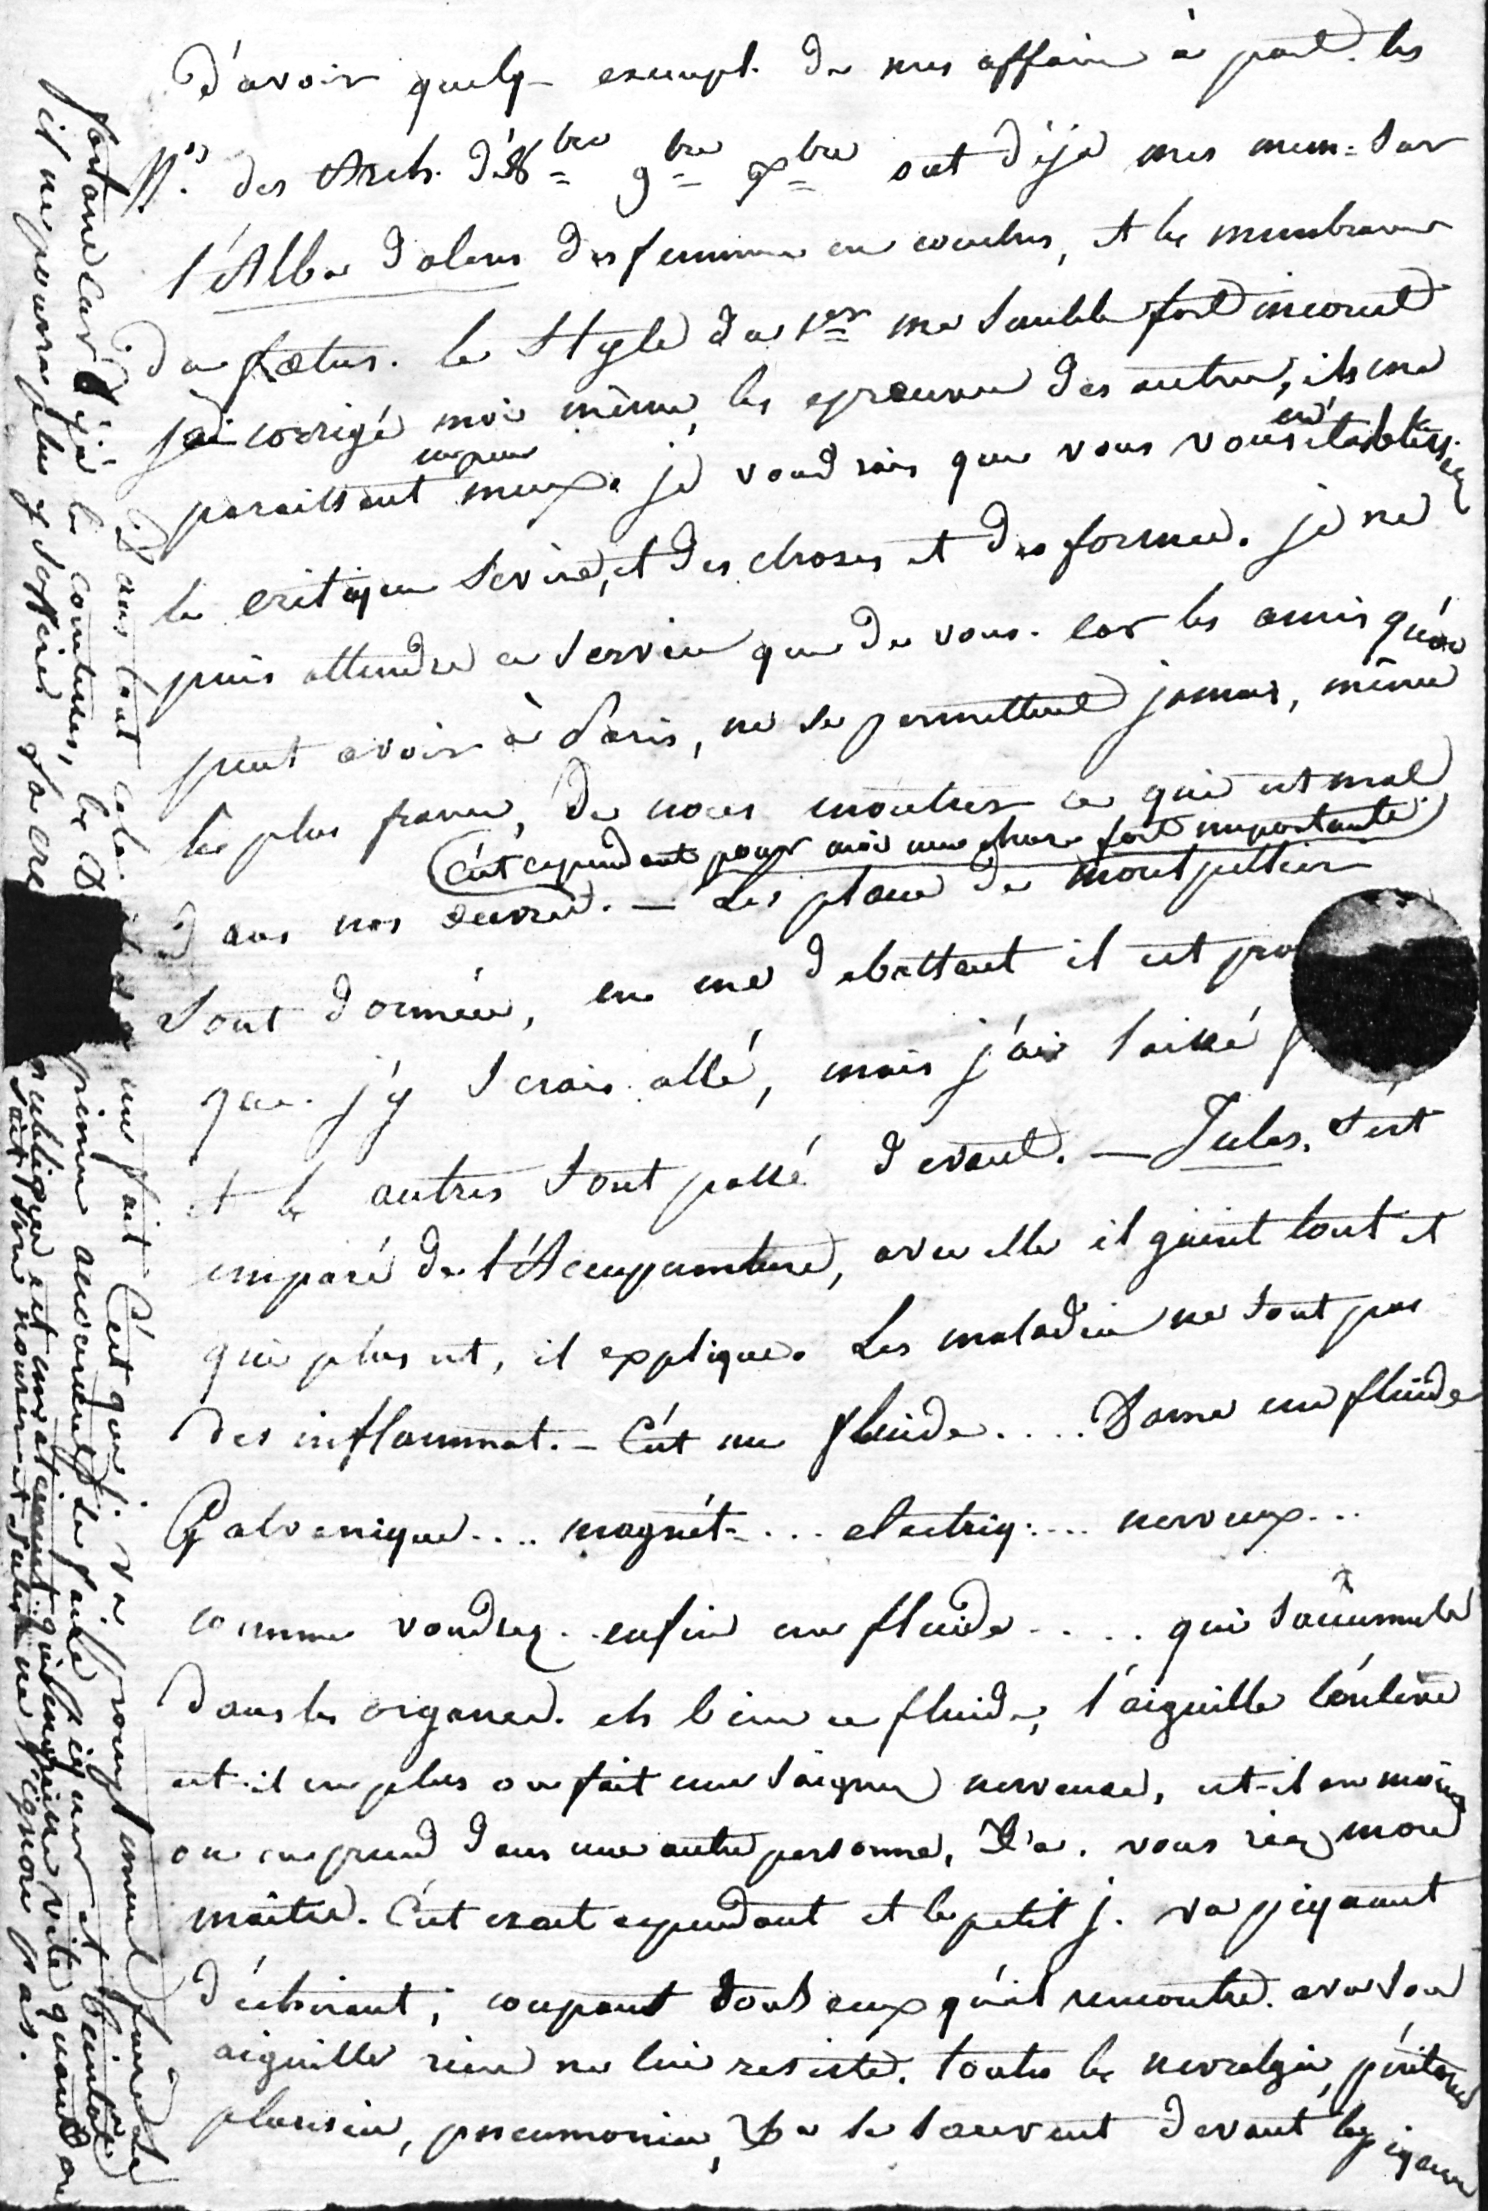 d'avoir quelq- exempl. de mes affaires à part. les
N.os des Arch. d'8bre 9bre Xbre ont déjà mes mem= sur
l'Alba dolens des femmes en couches, et les membranes
du fœtus. le Style du 1er me semble fort incorrect
j'ai corrigé moi même les epreuves des autres, ils me
paraissent un peu mieux. je voudrais que vous vous en établissiez
le critique sevère, et des choses et des formes. je ne
puis attendre ce service que de vous. car les amis qu'on
peut avoir à Paris, ne se permettent jamais, même
les plus francs, de nous montrer ce qui est mal
dans nos œuvres. (c'est cependant pour moi une chose fort importante) — Les places de montpellier
sont données, en me debattant il est pro
que j'y serais allé, mais j'ai laissé
et les autres sont passé devant. — Jules. s'est
emparé de l'Acupuncture, avec elle il guérit tout et
qui plus est, il explique. Les maladies ne sont pas
des inflammat.- C'est un fluide.... Dame un fluide
Galvanique.... magnét-... electriq:... nerveux...
comme voudrez.. enfin un fluide.... qui s'accumule
dans les organes. eh bien ce fluide, l'aiguille l'enlève
est-il en plus on fait une saignée nerveuse, est-il en moins
on en prend dans une autre personne, &a. vous riez mon
maître. C'est exact cependant et le petit j. va piquant
déchirant, coupant tous ceux qu'il rencontre. avec son
aiguille rien ne lui resiste. toutes les nevralgies, péritonites
pleurésies, pneumonies, &a se sauvent devant les piqures
Dans tout cela un fait C'est qu'il va promptement faire sa
fortune car déjà les comtesses, les D
accourent se faire piquer et bientôt
il ne pourra plus y suffire. Sacre
publique est un animal qui engraisse vite quand on
sait son nourrir et Jules ne l'ignore pas.